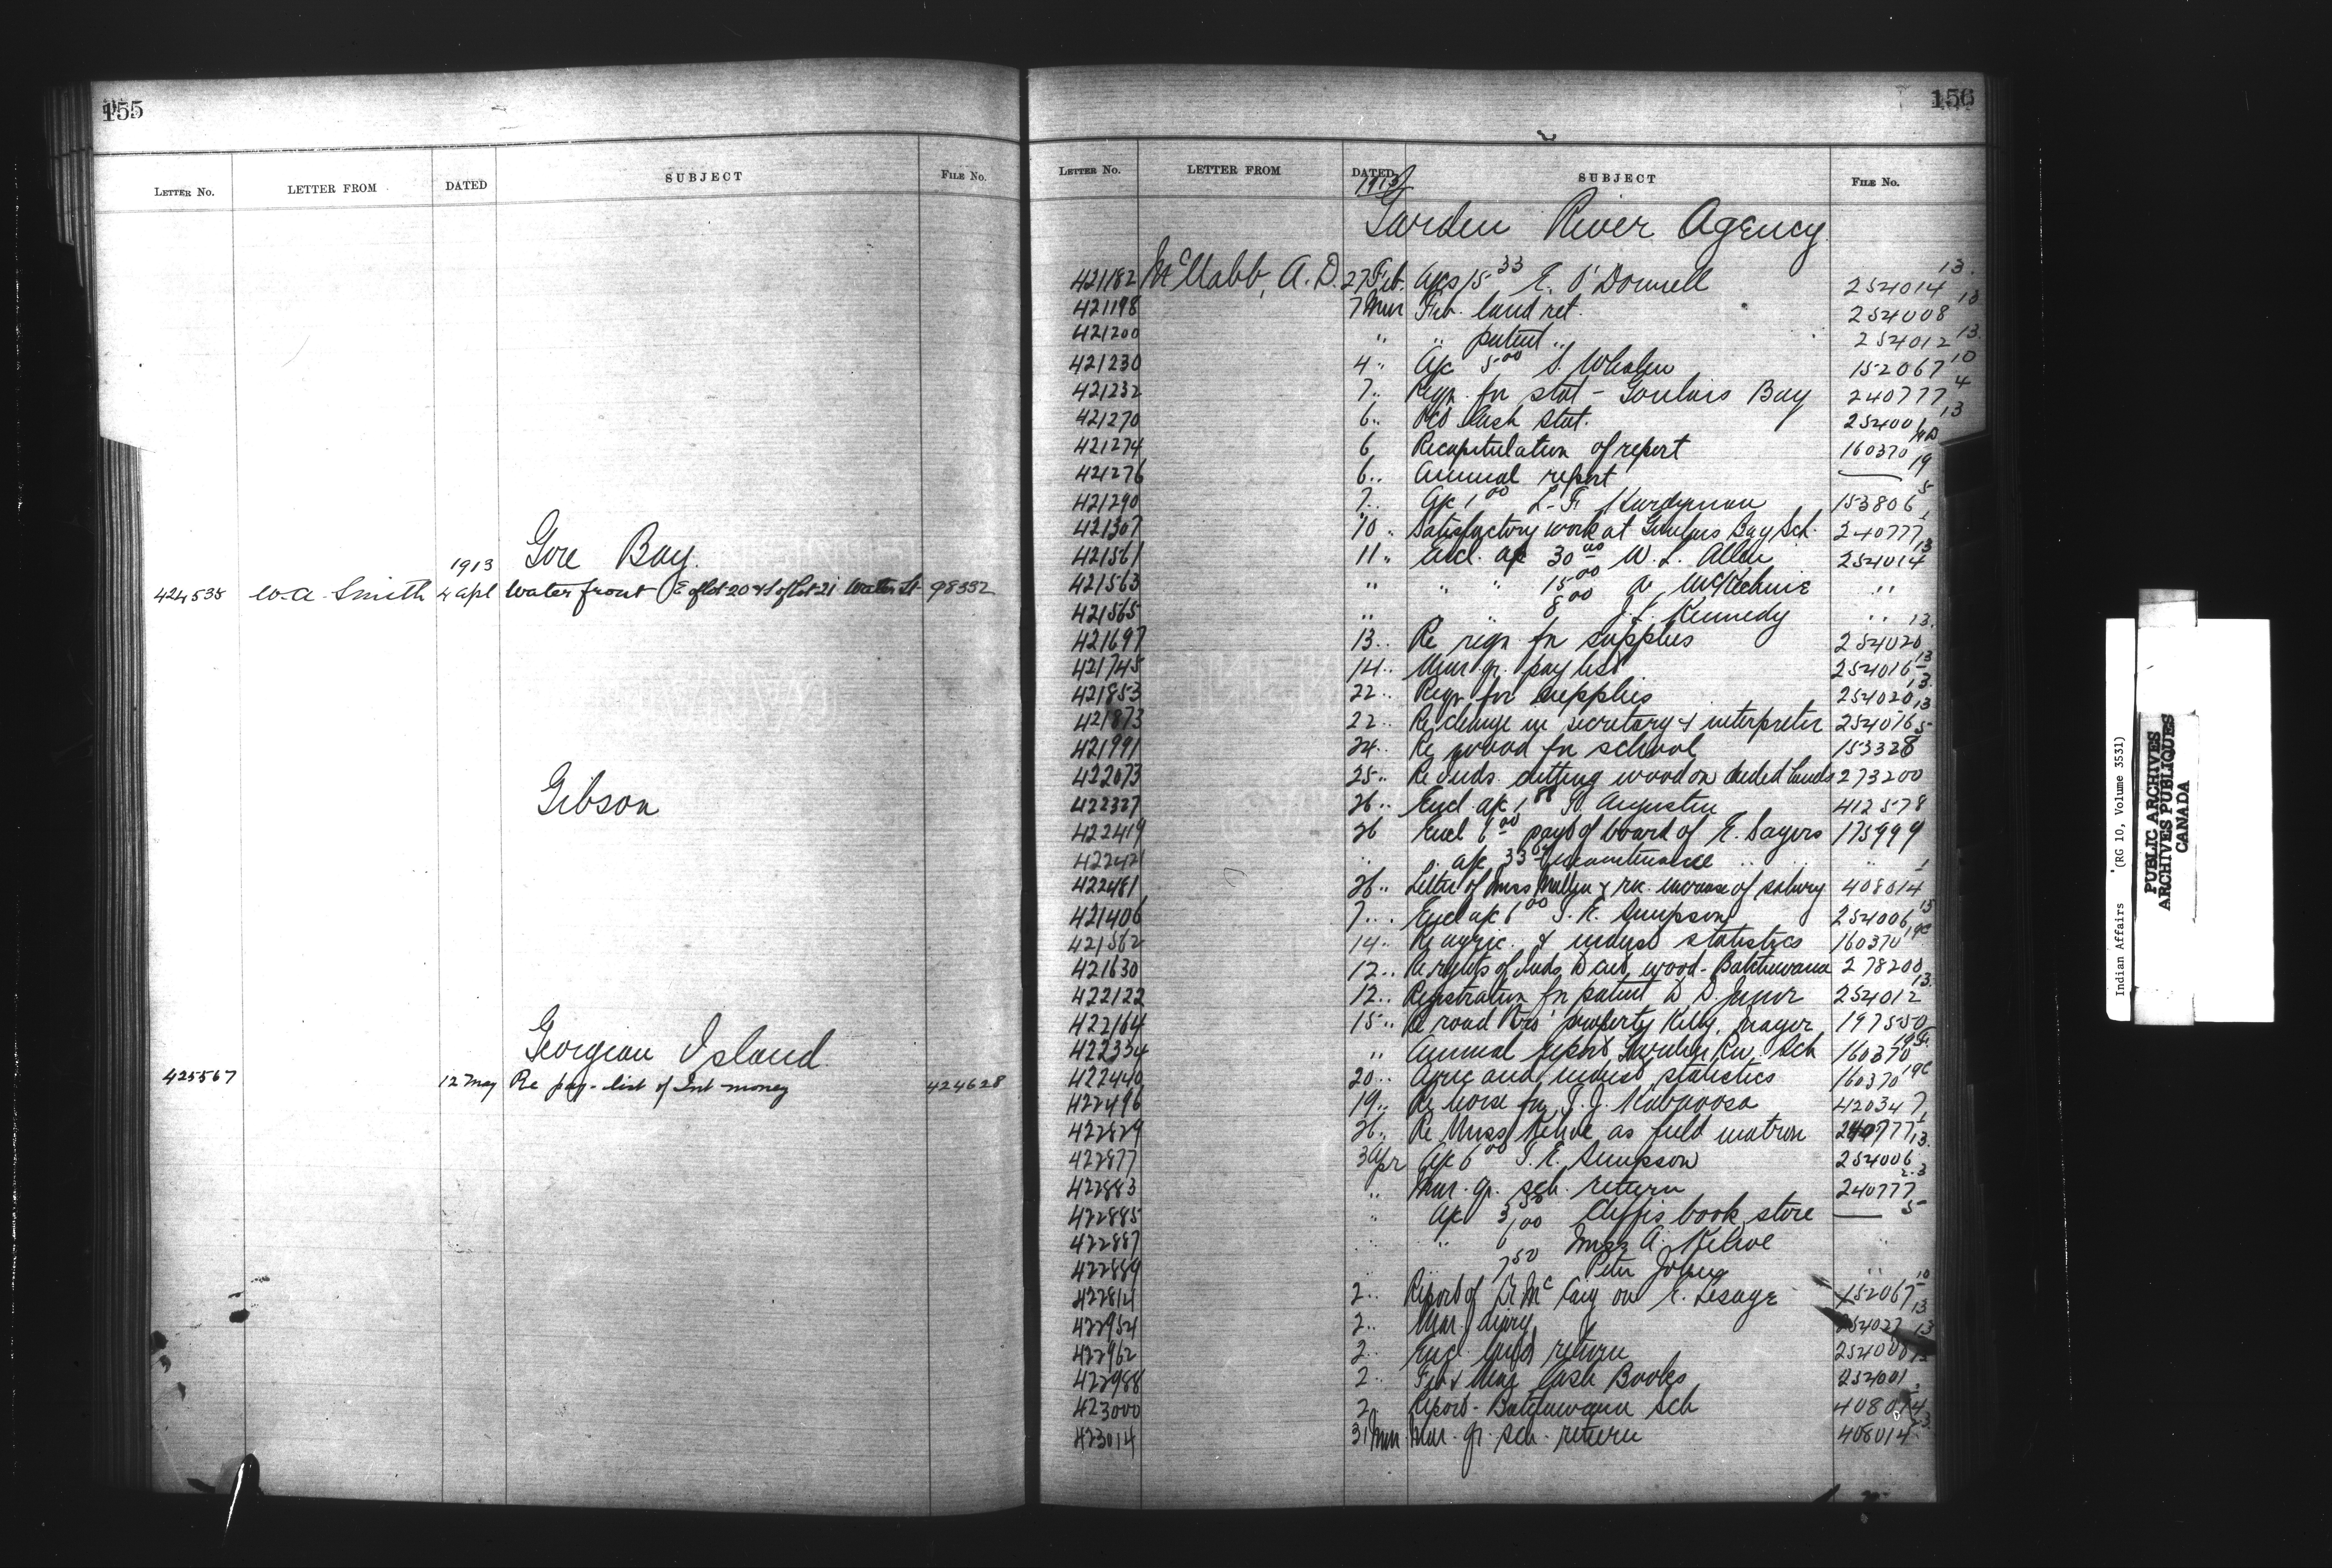 155
LETTER No. LETTER FROM DATED SUBJECT FILE No.
Gore Bay.
1913
424535 W.A. Smith 4 Apl Water front E of Lot 20 & S of Lot 21 Water St 98332
Gibson
Georgian Island
425567 12 May Re pay-list of Int money 424628
156
LETTER No. LETTER FROM DATED SUBJECT FILE No.
1913
Garden River Agency
421182 McNabb, A.D. 27 Feb. Aps 15 33 E. O'Donnell 254014 13.
421198 7 Mar Feb. land ret. 254008 13
421200 " " patent " 254012 13.
421230 4 " Ap 5 00 S. Whalen 152067 10
421232 7 " Reqn. for stat - Goulais Bay 240777 4
421270 6 " Cash Stat. 254006 13
421274 6 Recapitulation of report 160370
421276 6 " Annual report — 19
421290 7 " Ap 1 00 L. F. Hardyman 153806 5
421307 10 " Satisfactory work at Goulais Bay Sch. 240777 1
421561 11 " Encl. ap 30 00 W. L. Allen 254014 13
421563 " " " 15 00 McKechnie "
421565 " " 8 00 J. J. Kennedy " " 13.
421697 13 " Re reqn for supplies 254020
421745 14 " Mar qr. pay list 254016 13
421853 22 " Reqn. for supplies 254020 13.
421873 22 " Re change in secretary & interpreter 254016 13
421991 24 " Re wood for school 153328 5
422073 25 " Re Inds. cutting wood on deeded lands 273200
422327 26 " Encl. ap 1 88 St. Augustin 412578
422419 26 Encl 6 00 payt of board of E. Sayers 175999
422421 " " ap 33 maintenance " " "
422481 26 " Letter of Miss Mullin & rec. increase of salary 408014 1
421406 7 " Encl ap 6 00 T. E. Simpson 254006 13
421562 14 " Re agric. & indust statistics 160370 19C
421630 12 " Re rights of Inds. to cut wood - Batchewana 278200
422122 12 " Registration for patent to D. 254012 13.
422164 15 " Re road thro' property Kelly, 197550
422334 " Annual report Garden Riv. Sch 160370
422440 20 " Agric and indust statistics 160370 19C
422496 19 " Re horse for T. J. Kabaoosa 420347
422829 26 " Re Miss Kehoe as field matron 240777 1
422877 3 Apr Ap 6 00 T. E. Simpson 254006 13.
422883 " Mar. qr. sch. return 240777 2.3
422885 " Ap 3 58 Cliffes book store — 5
422887 " " 6 00 Miss A. Kehoe "
422889 " 7 50 Peter Jones "
422814 2 " Report of Dr McCaig on E. Lesage 152067 10
422954 2 " Mar. diary 254027 13
422962 2 " Encl. land return 254008 13
422988 2 " Feb & Mar Cash Books 254001
423000 2 Report - Batchewana Sch 408014
423014 31 Mar. Mar. qr. sch. return 408014
Indian Affairs (RG 10, Volume 3531)
PUBLIC ARCHIVES
ARCHIVES PUBLIQUES
CANADA